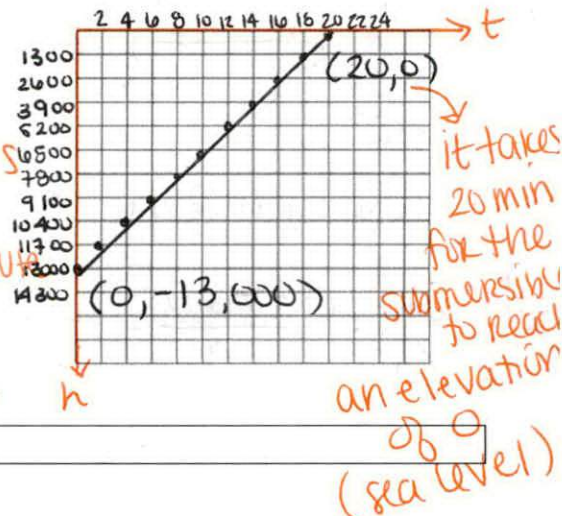 2 4 6 8 10 12 14 16 18 20 22 24
t
1300
2600
3900
5200
6500
7800
9100
10400
11700
13000
14300
h
(20,0)
(0,-13,000)
it takes
20 min
for the
to reach
an elevation
of 0
(sea level)